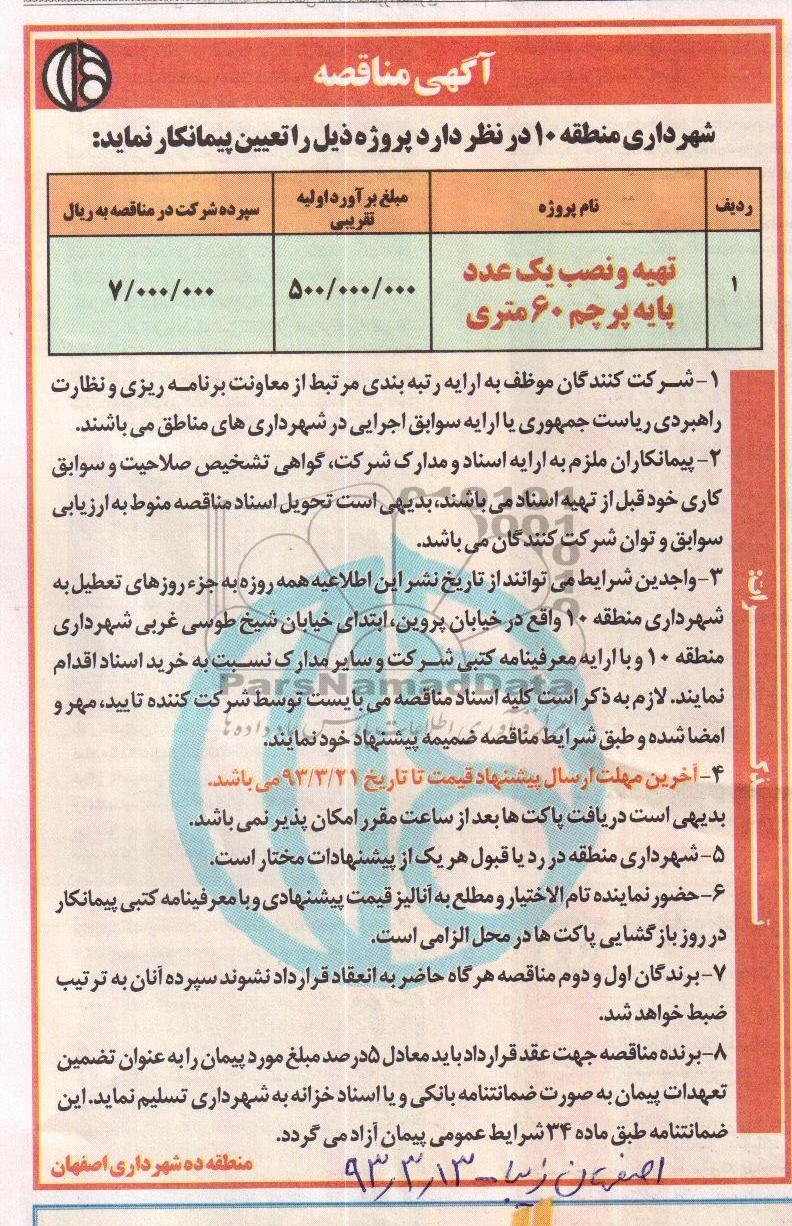 آگهی مناقصه
شهرداری منطقه ۱۰ در نظر دارد پروژه ذیل را تعیین پیمانکار نماید:
ردیف
نام پروژه
مبلغ برآورد اولیه
تقریبی
سپرده شرکت در مناقصه به ریال
۱
تهیه و نصب یک عدد
پایه پرچم ۶۰ متری
۵۰۰/۰۰۰/۰۰۰
۷/۰۰۰/۰۰۰
تذکرات:
۱- شرکت کنندگان موظف به ارایه رتبه بندی مرتبط از معاونت برنامه ریزی و نظارت
راهبردی ریاست جمهوری یا ارایه سوابق اجرایی در شهرداری های مناطق می باشند.
۲- پیمانکاران ملزم به ارایه اسناد و مدارک شرکت، گواهی تشخیص صلاحیت و سوابق
کاری خود قبل از تهیه اسناد می باشند، بدیهی است تحویل اسناد مناقصه منوط به ارزیابی
سوابق و توان شرکت کنندگان می باشد.
۳- واجدین شرایط می توانند از تاریخ نشر این اطلاعیه همه روزه به جزء روزهای تعطیل به
شهرداری منطقه ۱۰ واقع در خیابان پروین، ابتدای خیابان شیخ طوسی غربی شهرداری
منطقه ۱۰ و با ارایه معرفینامه کتبی شرکت و سایر مدارک نسبت به خرید اسناد اقدام
نمایند. لازم به ذکر است کلیه اسناد مناقصه می بایست توسط شرکت کننده تایید، مهر و
امضا شده و طبق شرایط مناقصه ضمیمه پیشنهاد خود نمایند.
۴- آخرین مهلت ارسال پیشنهاد قیمت تا تاریخ ۹۳/۳/۲۱ می باشد.
بدیهی است دریافت پاکت ها بعد از ساعت مقرر امکان پذیر نمی باشد.
۵- شهرداری منطقه در رد یا قبول هر یک از پیشنهادات مختار است.
۶- حضور نماینده تام الاختیار و مطلع به آنالیز قیمت پیشنهادی و با معرفینامه کتبی پیمانکار
در روز بازگشایی پاکت ها در محل الزامی است.
۷- برندگان اول و دوم مناقصه هرگاه حاضر به انعقاد قرارداد نشوند سپرده آنان به ترتیب
ضبط خواهد شد.
۸- برنده مناقصه جهت عقد قرارداد باید معادل ۵ درصد مبلغ مورد پیمان را به عنوان تضمین
تعهدات پیمان به صورت ضمانتنامه بانکی و یا اسناد خزانه به شهرداری تسلیم نماید. این
ضمانتنامه طبق ماده ۳۴ شرایط عمومی پیمان آزاد می گردد.
منطقه ده شهرداری اصفهان
اصفهان زیبا - ۹۳/۳/۱۳
ParsNamadData